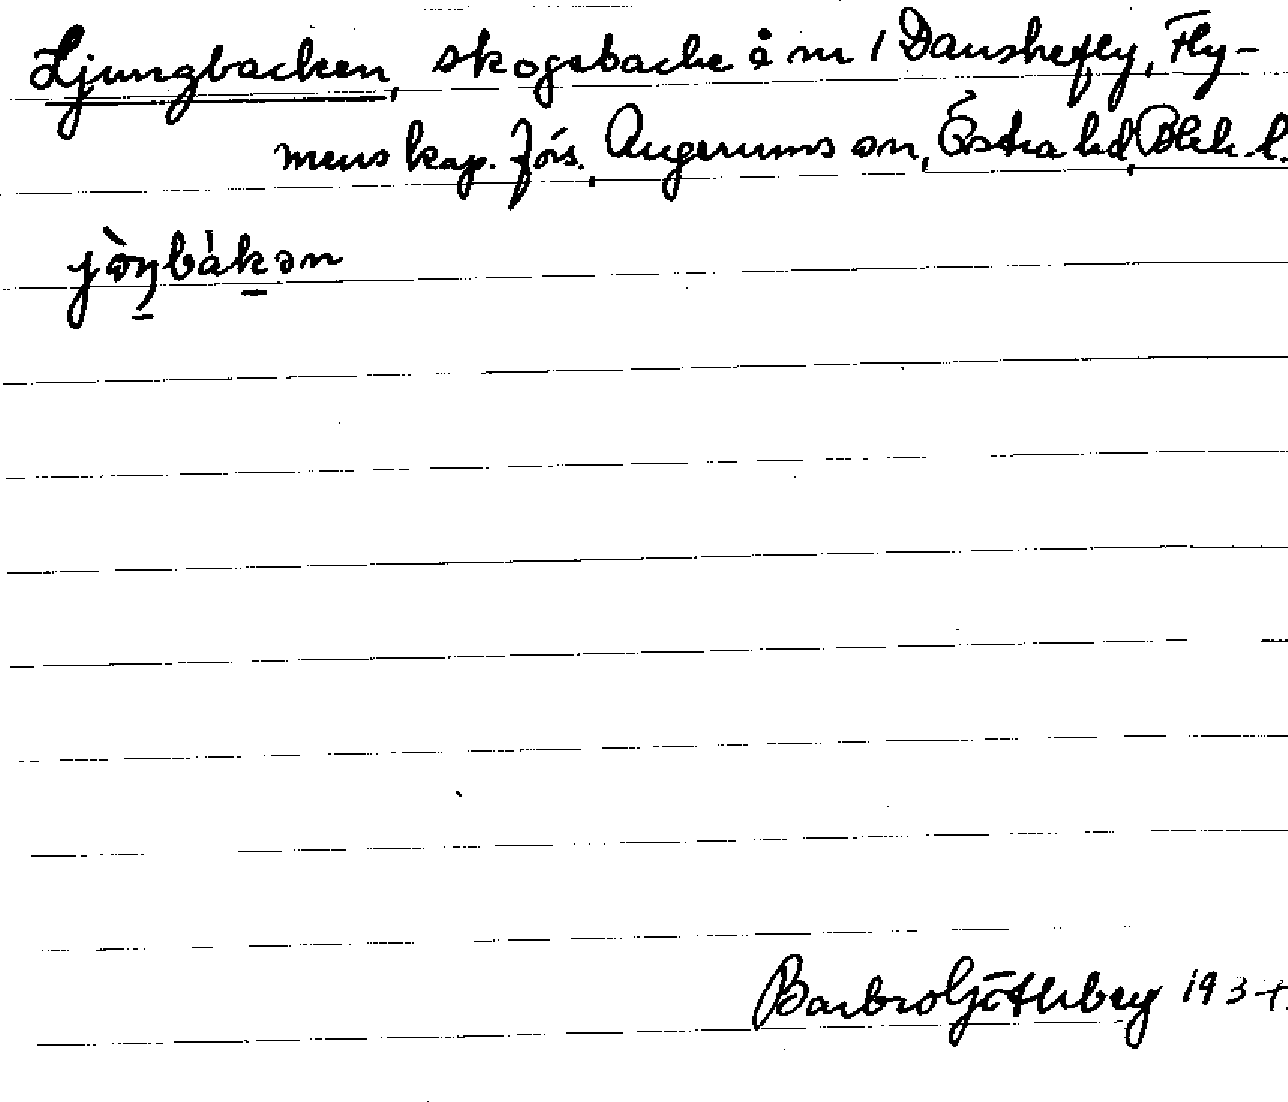 Ljungbacken, skogsbacke å nr 1 Danskefly, Fly-
mens kap. förs., Augerums sn, Östra hd, Blek. l.
jòŋbákən
Barbro Götlberg 193